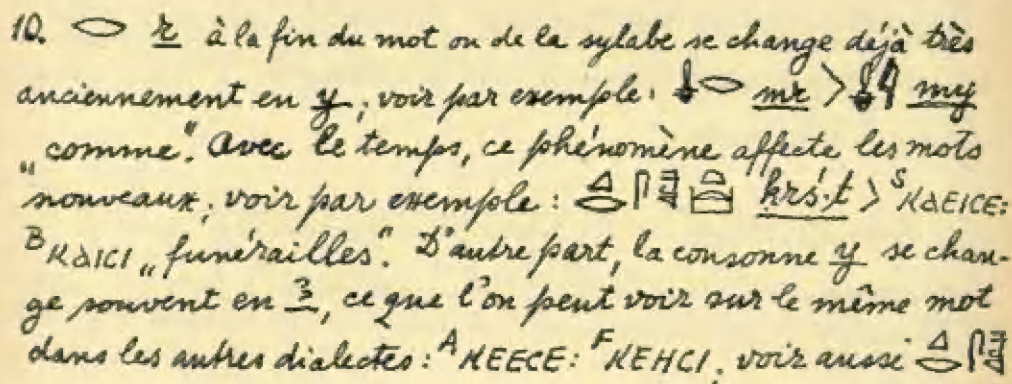 10. 𓂋 r à la fin du mot ou de la sylabe se change déjà très
anciennement en y, voir par exemple: 𓂋 mr > 𓇋 my
„comme". Avec le temps, ce phénomène affecte les mots
nouveaux, voir par exemple: ḳrś·t > ˢⲕⲁⲉⲓⲥⲉ:
ᴮⲕⲁⲓⲥⲓ „funérailles". D'autre part, la consonne y se chan-
ge souvent en ꜣ, ce que l'on peut voir sur le même mot
dans les autres dialectes: ᴬⲕⲉⲉⲥⲉ: ꟳⲕⲉⲏⲥⲓ, voir aussi